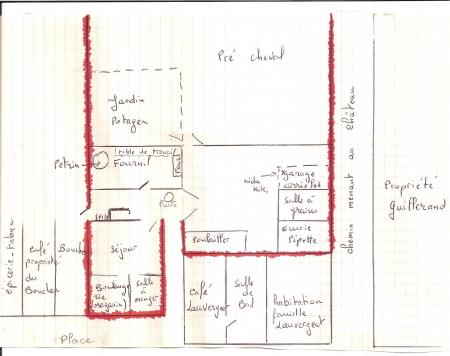 Pré cheval
Jardin
Potager
table de travail
Pétrin
Fournil
Four
Puits
garage
carrioles
Salle à
grains
Ecurie
Pépette
Poulailler
chemin menant au château
Propriété
Guifferand
épicerie-tabac
Café
propriété
du
Boucher
Boucher
séjour
Boulange
rie
(magasin)
Salle
à
manger
Café
Lauvergeat
Salle
de
Bal
habitation
famille
Lauvergeat
Place